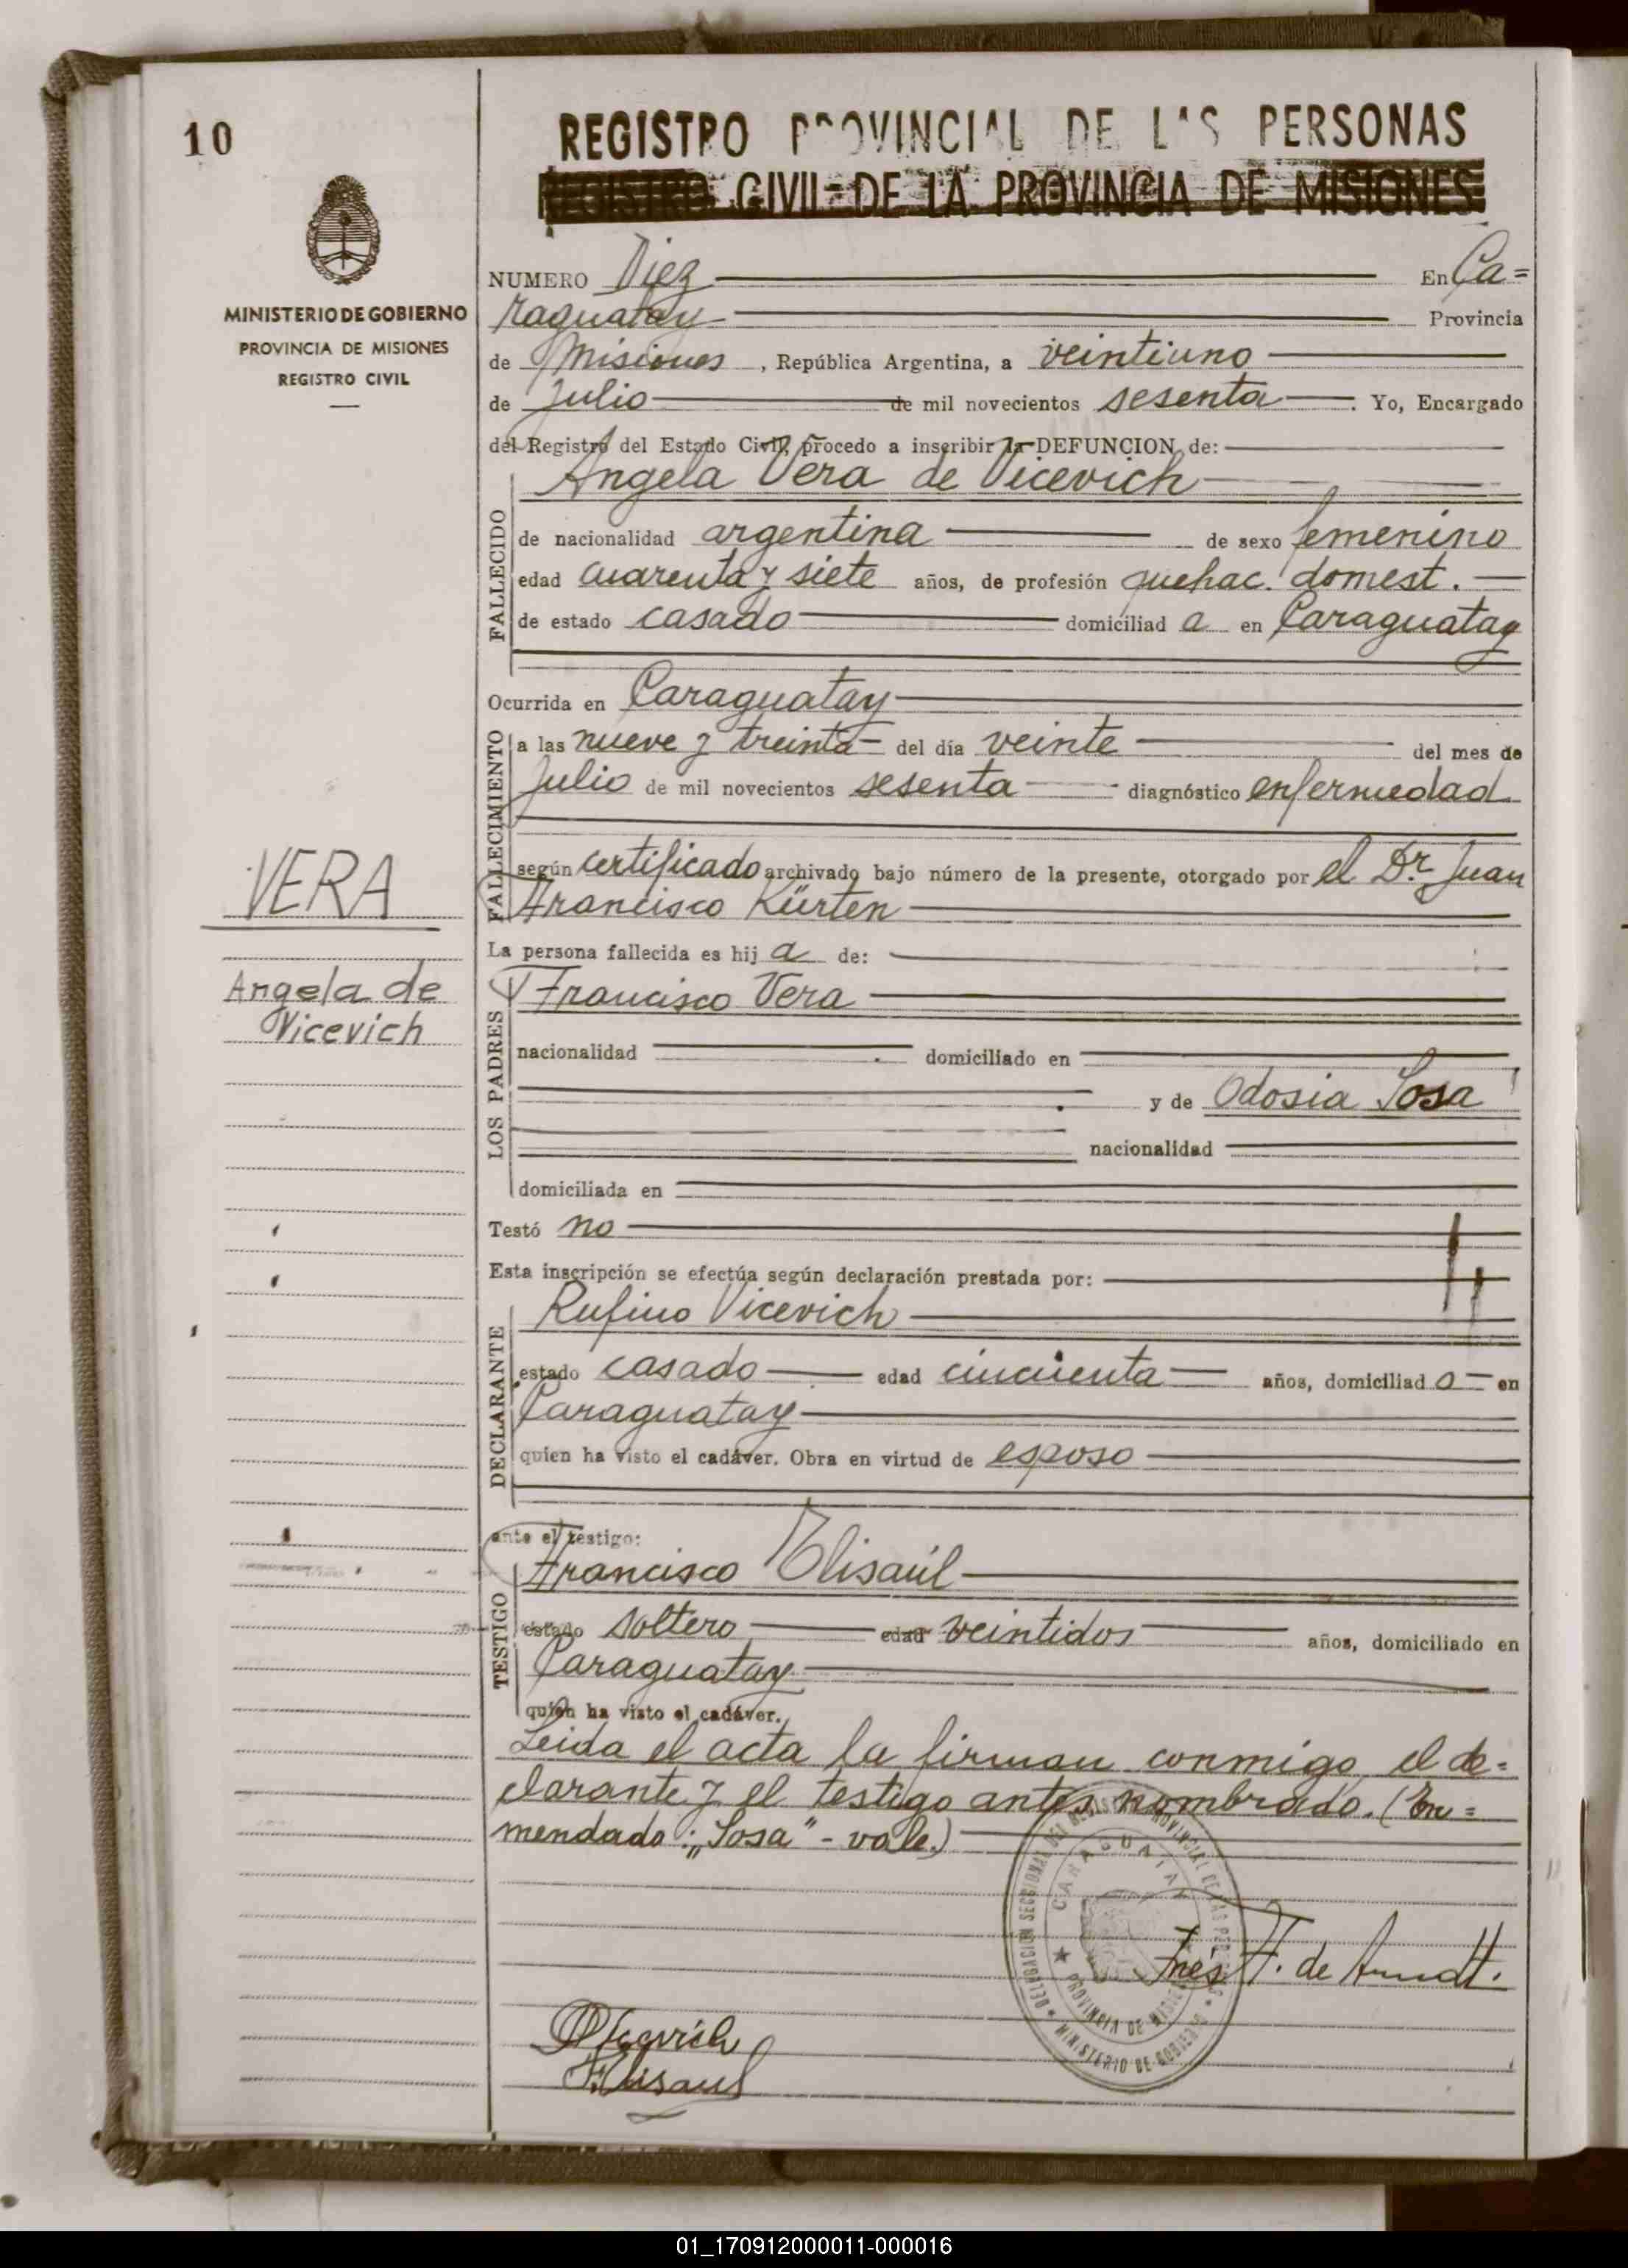 10
REGISTRO PROVINCIAL DE LAS PERSONAS
REGISTRO CIVIL DE LA PROVINCIA DE MISIONES
MINISTERIO DE GOBIERNO
PROVINCIA DE MISIONES
REGISTRO CIVIL
NUMERO Diez En Ca=
raguatay Provincia
de Misiones, República Argentina, a veintiuno
de Julio de mil novecientos sesenta. Yo, Encargado
del Registro del Estado Civil, procedo a inscribir la DEFUNCION de:
Angela Vera de Vicevich
FALLECIDO
de nacionalidad argentina de sexo femenino
edad cuarenta y siete años, de profesión quehac. domest.
de estado casado domiciliad a en Caraguatay
Ocurrida en Caraguatay
FALLECIMIENTO
a las nueve y treinta del día veinte del mes de
Julio de mil novecientos sesenta diagnóstico enfermedad
según certificado archivado bajo número de la presente, otorgado por el Dr. Juan
Francisco Kürten
VERA
Angela de
Vicevich
La persona fallecida es hij a de:
LOS PADRES
Francisco Vera
nacionalidad domiciliado en
y de Odosia Sosa
nacionalidad
domiciliada en
Testó no
Esta inscripción se efectúa según declaración prestada por:
DECLARANTE
Rufino Vicevich
estado casado edad cincuenta años, domiciliad o en
Caraguatay
quien ha visto el cadáver. Obra en virtud de esposo
ante el testigo:
TESTIGO
Francisco Elisaúl
estado soltero edad veintidos años, domiciliado en
Caraguatay
quien ha visto el cadáver.
Leida el acta la firman conmigo, el de=
clarante y el testigo antes nombrado. (En=
mendado: „Sosa" - vale.)
DELEGACION SECCIONAL DEL REGISTRO PROVINCIAL DE LAS PERSONAS
CARAGUATAY
PROVINCIA DE MISIONES
MINISTERIO DE GOBIERNO
Inés F. de Arndt.
F. Elisaul
01_170912000011-000016